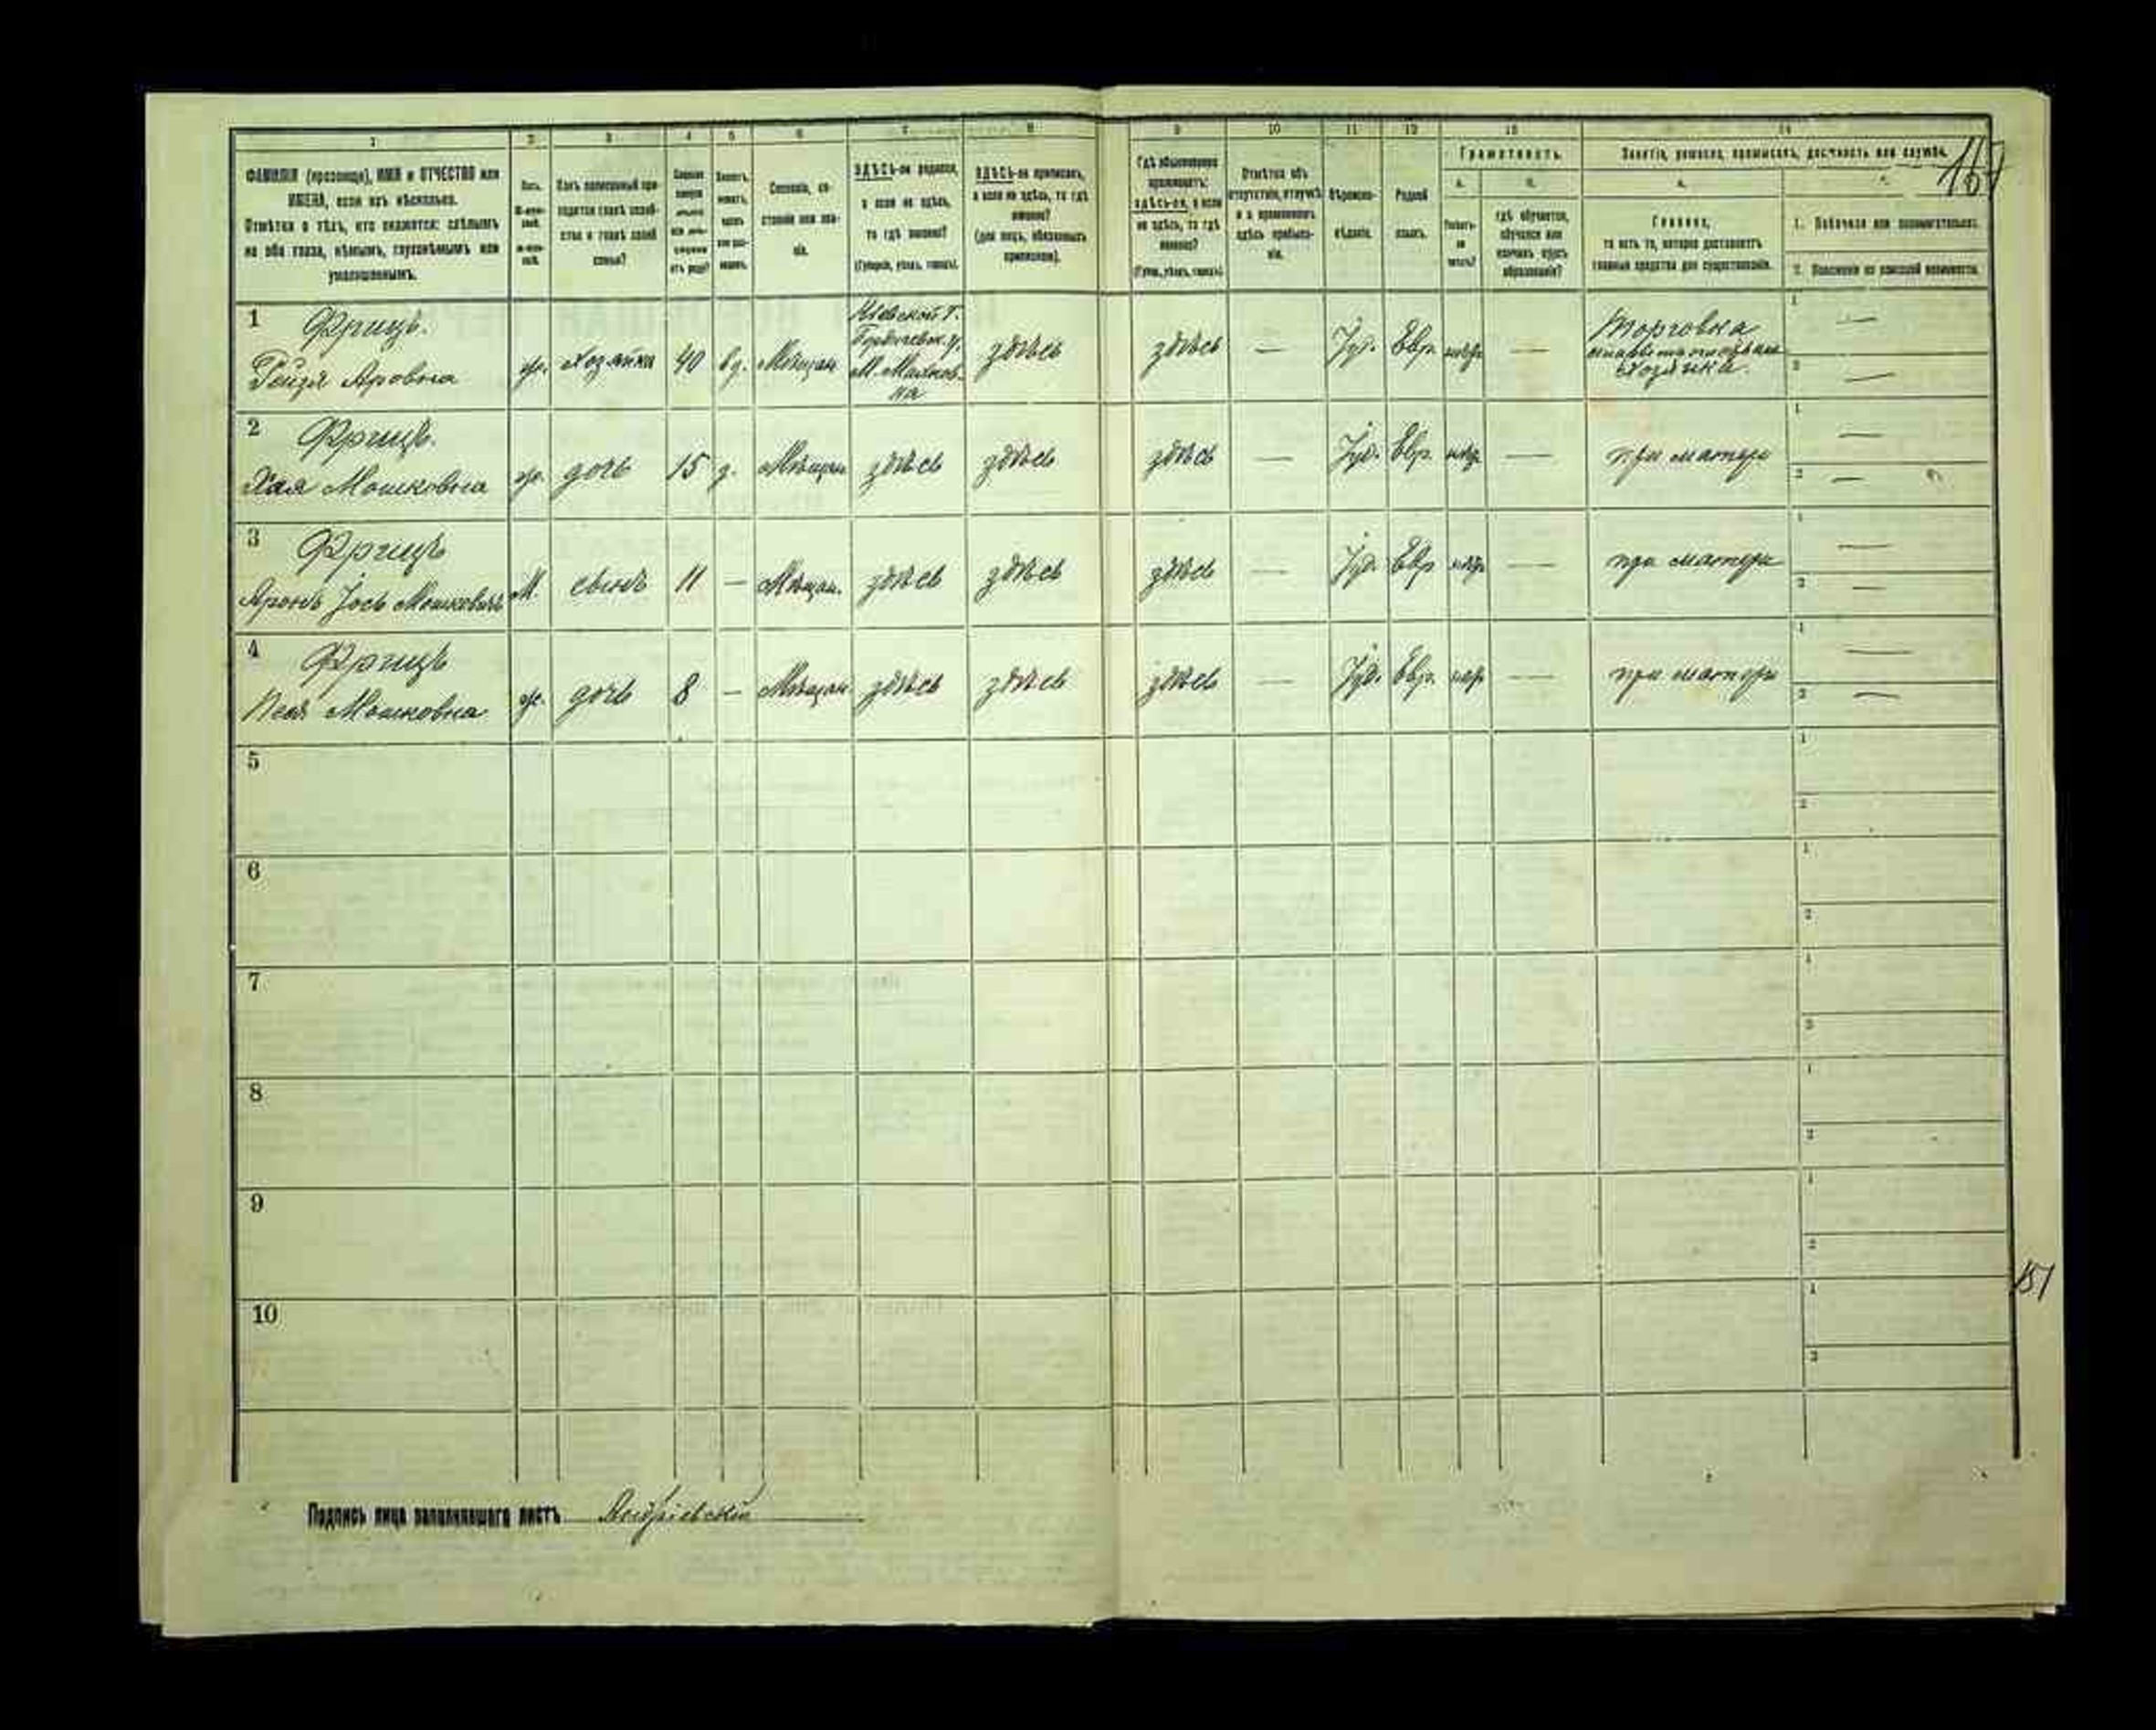 1
2
3
4
5
6
7
8
9
10
11
12
13
14
ФАМИЛІЯ (прозвище), ИМЯ и ОТЧЕСТВО или
ИМЕНА, если ихъ нѣсколько.
Отмѣтка о тѣхъ, кто окажется: слѣпымъ
на оба глаза, нѣмымъ, глухонѣмымъ или
умалишеннымъ.
Полъ.
Какъ записанный при-
ходится главѣ хозяй-
ства и главѣ своей
семьи?
Сословіе, со-
стояніе или зва-
ніе.
ЗДѢСЬ-ли родился,
а если не здѣсь,
то гдѣ именно?
(Губернія, уѣздъ, городъ).
ЗДѢСЬ-ли приписанъ,
а если не здѣсь, то гдѣ
именно?
(для лицъ, обязанныхъ
припискою).
Гдѣ обыкновенно
проживаетъ:
здѣсь-ли, а если
не здѣсь, то гдѣ
именно?
(Губ., уѣздъ, городъ).
Отмѣтка объ
отсутствіи, отлучкѣ
и о временномъ
здѣсь пребыва-
ніи.
Вѣроиспо-
вѣданіе.
Родной
языкъ.
Грамотность.
а.
Умѣетъ-
ли
читать?
б.
гдѣ обучается,
обучался или
кончилъ курсъ
образованія?
Занятіе, ремесло, промыселъ, должность или служба.
167
а.
Главное,
то есть то, которое доставляетъ
главныя средства для существованія.
1. Побочное или вспомогательное.
2. Положеніе по воинской повинности.
1 Фрицъ.
Рейзя Ароновна
ж.
Хозяйка
40
вд.
Мѣщан.
Кіевской Г.
Бердичевск. у.
здѣсь
здѣсь
—
Іуд.
Евр.
—
Торговка
Хозяйка.
1 —
2 —
2 Фрицъ.
Хая Мошковна
ж.
дочь
15
д.
Мѣщан.
здѣсь
здѣсь
здѣсь
—
Іуд.
Евр.
—
при матери
1 —
2 —
3 Фрицъ
Аронъ Іось Мошковичъ
М.
сынъ
11
—
Мѣщан.
здѣсь
здѣсь
здѣсь
—
Іуд.
Евр.
—
при матери
1 —
2 —
4 Фрицъ
Песя Мошковна
ж.
дочь
8
—
Мѣщан.
здѣсь
здѣсь
здѣсь
—
Іуд.
Евр.
—
при матери
1 —
2 —
5
1
2
6
1
2
7
1
2
8
1
2
9
1
2
10
1
2
151
Подпись лица заполнявшаго листъ Андріевскій